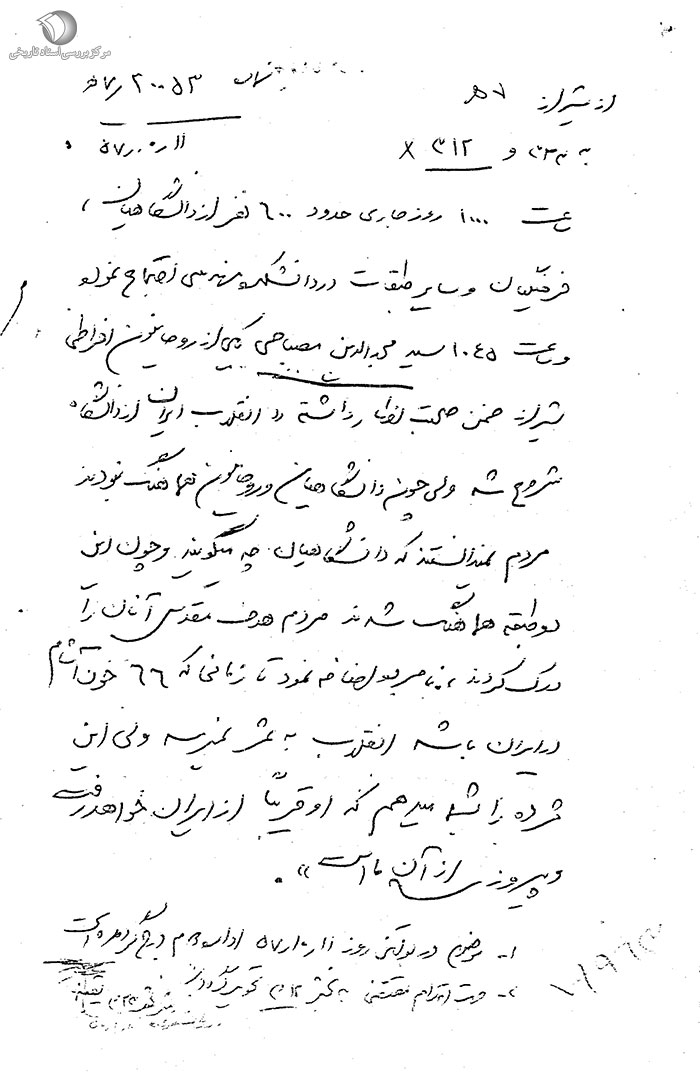 مرکز بررسی اسناد تاریخی
از شیراز
به ۳۴۰ و ۳۱۲ ×
ساعت ۱۰۰۰ روز جاری حدود ۶۰۰ نفر از دانشگاهیان،
فرهنگیان و سایر طبقات در دانشکده مهندسی اجتماع نمود و
ساعت ۱۰۴۵ سید مجدالدین مصباحی یکی از روحانیون افراطی
شیراز ضمن صحبت اظهار داشته که انقلاب ایران از دانشگاه
شروع شد ولی چون دانشگاهیان و روحانیون هماهنگ نبودند
مردم نمیدانستند که دانشگاهیان چه میگویند و چون این
دو طبقه هماهنگ شدند مردم هدف مقدس آنان را
درک کردند، نامبرده اضافه نمود تا زمانی که ۶۶ خون آشام
در ایران باشد انقلاب به ثمر نمیرسد ولی این
مژده را بشما میدهم که او قریباً از ایران خواهد رفت
و پیروزی از آن ما است».
۱- موضوع در بولتن روز ۵۷ اداره درج گردیده است
۲- جهت اقدام مقتضی به بخش ۳۱۲ تحویل گردد